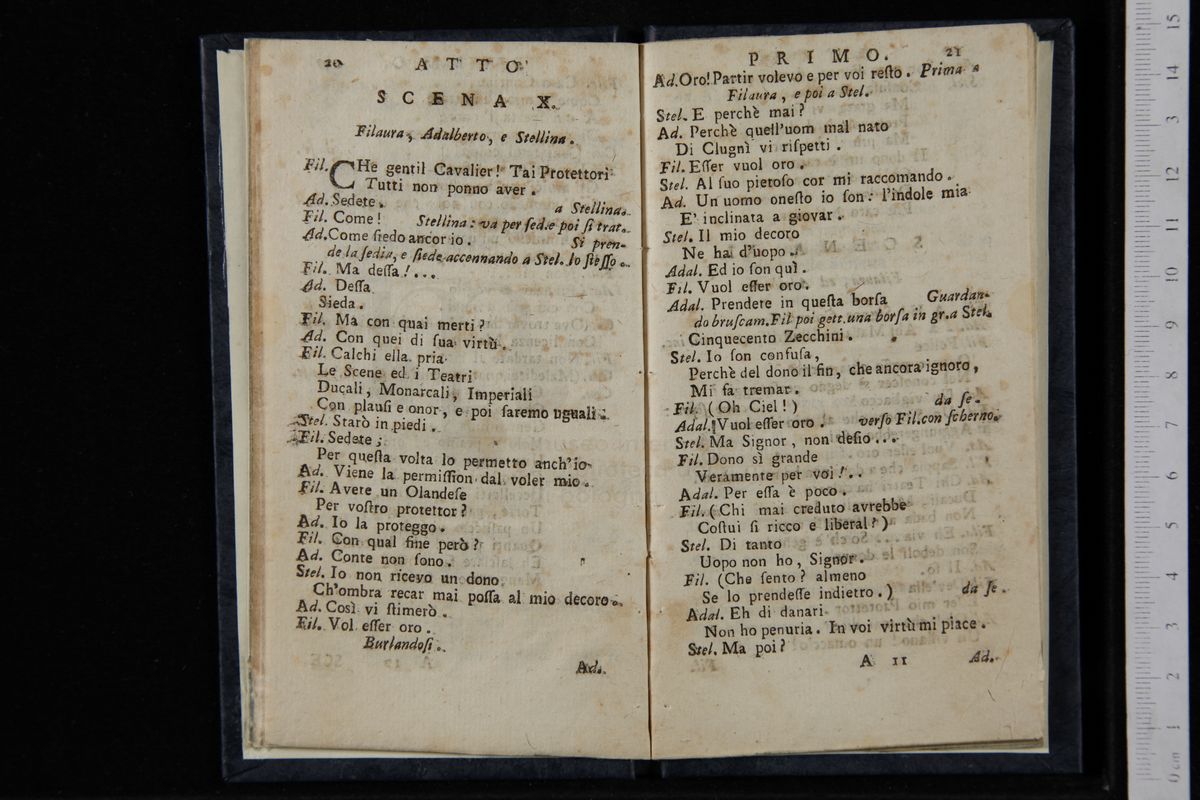 20 ATTO
SCENA X.
Filaura, Adalberto, e Stellina.
Fil. CHe gentil Cavalier! Tai Protettori
Tutti non ponno aver.
Ad. Sedete. a Stellina.
Fil. Come! Stellina: va per sed.e poi si trat.
Ad. Come siedo ancor io. Si pren-
de la sedia, e siede accennando a Stel. lo stesso.
Fil. Ma dessa!...
Ad. Dessa
Sieda.
Fil. Ma con quai merti?
Ad. Con quei di sua virtù.
Fil. Calchi ella pria
Le Scene ed i Teatri
Ducali, Monarcali, Imperiali
Con plausi e onor, e poi saremo uguali.
Stel. Starò in piedi.
Fil. Sedete;
Per questa volta lo permetto anch'io
Ad. Viene la permission dal voler mio.
Fil. Avere un Olandese
Per vostro protettor?
Ad. Io la proteggo.
Fil. Con qual fine però?
Ad. Conte non sono.
Stel. Io non ricevo un dono
Ch'ombra recar mai possa al mio decoro.
Ad. Così vi stimerò.
Fil. Vol esser oro.
Burlandosi.
Ad.
PRIMO. 21
Ad. Oro! Partir volevo e per voi resto. Prima a
Filaura, e poi a Stel.
Stel. E perchè mai?
Ad. Perchè quell'uom mal nato
Di Clugnì vi rispetti.
Fil. Esser vuol oro.
Stel. Al suo pietoso cor mi raccomando.
Ad. Un uomo onesto io son: l'indole mia
E' inclinata a giovar.
Stel. Il mio decoro
Ne ha d'uopo.
Adal. Ed io son quì.
Fil. Vuol esser oro.
Adal. Prendere in questa borsa Guardan-
do bruscam. Fil poi gett. una borsa in gr. a Stel.
Cinquecento Zecchini.
Stel. Io son confusa,
Perchè del dono il fin, che ancora ignoro,
Mi fa tremar.
Fil. (Oh Ciel!) da se.
Adal. Vuol esser oro. verso Fil. con scherno.
Stel. Ma Signor, non desio...
Fil. Dono sì grande
Veramente per voi!..
Adal. Per essa è poco.
Fil. (Chi mai creduto avrebbe
Costui si ricco e liberal?)
Stel. Di tanto
Uopo non ho, Signor.
Fil. (Che sento? almeno
Se lo prendesse indietro.) da se.
Adal. Eh di danari
Non ho penuria. In voi virtù mi piace.
Stel. Ma poi?
A 11 Ad.
15
14
13
12
11
10
9
8
7
6
5
4
3
2
1
0 cm